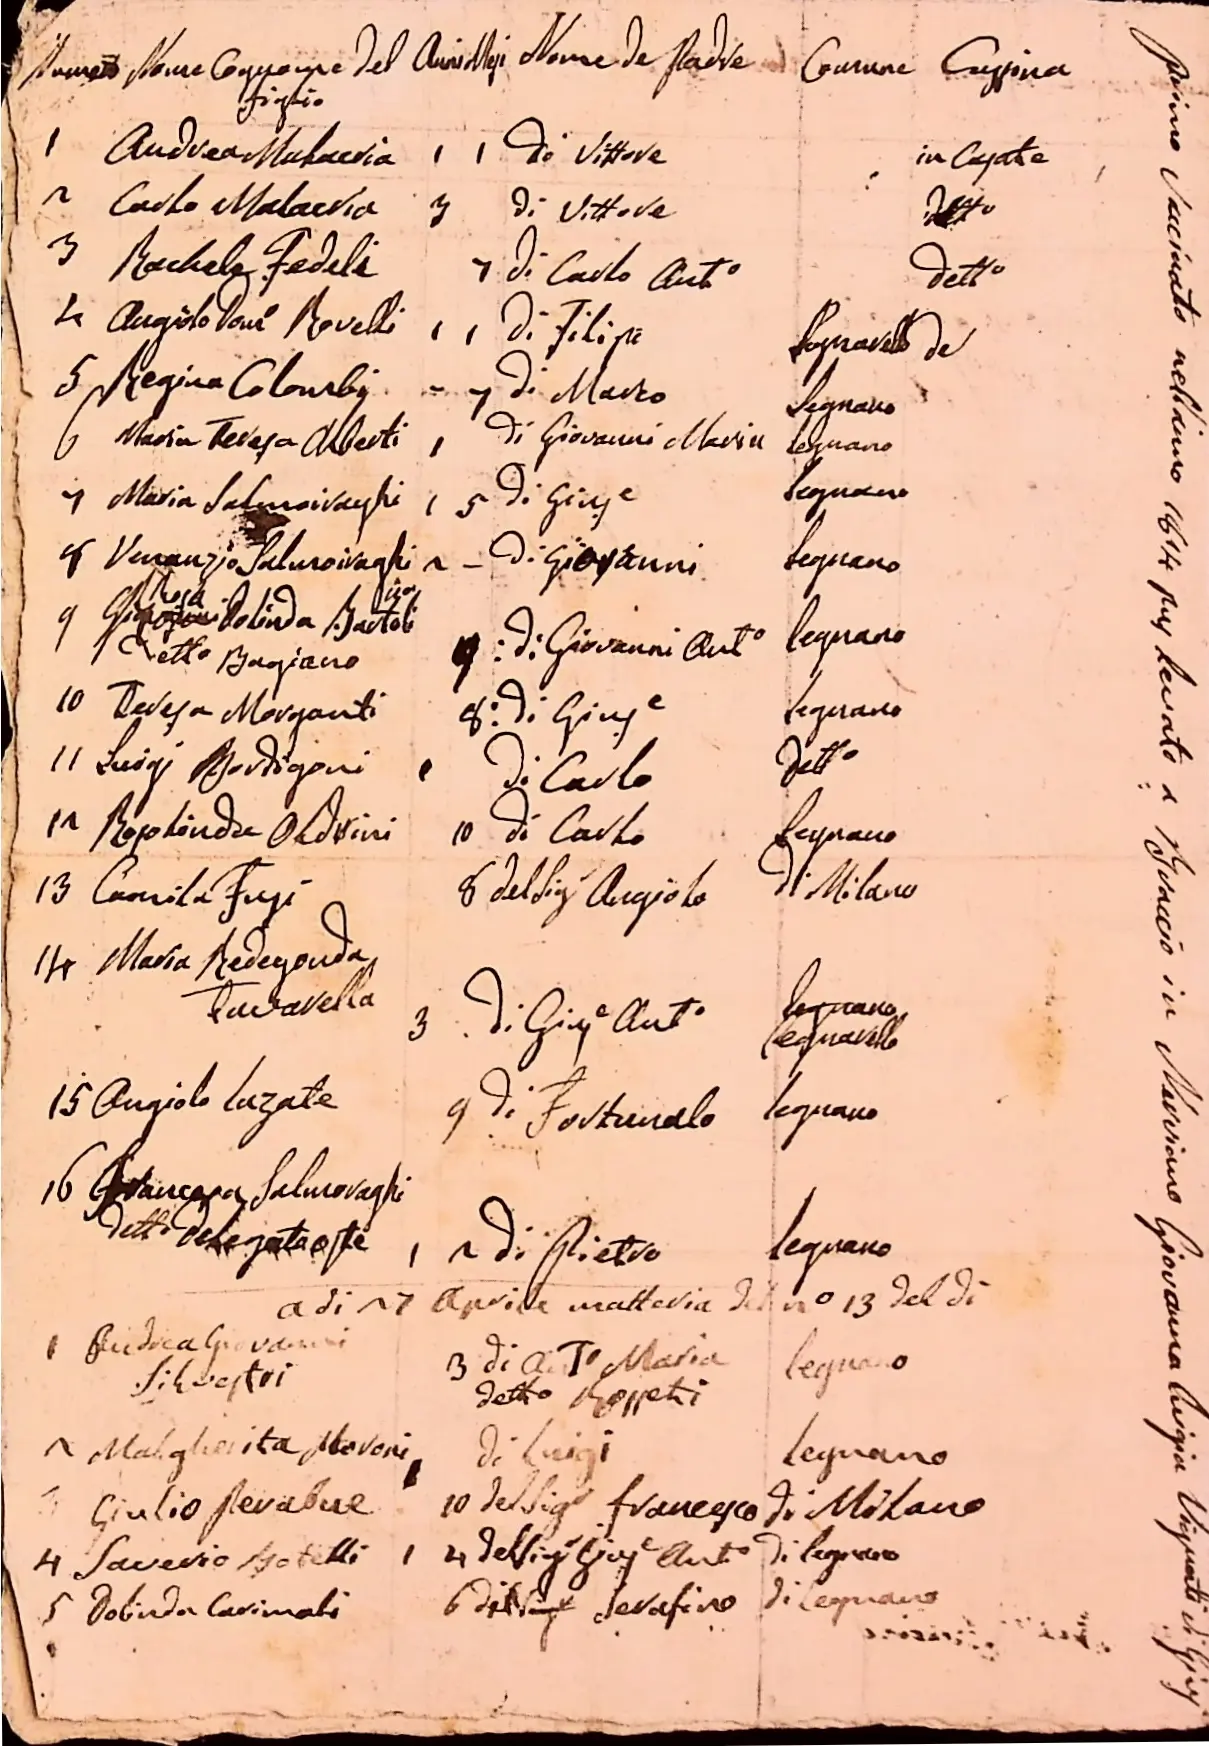 Numero Nome Cognome del Anni Mesi Nome de Padre Comune Cassina
figlio
1 Andrea Malacria 1 1 di Vittore in Casate
2 Carlo Malacria 3 di Vittore detto
3 Rachele Fedeli 7 di Carlo Ant.o detto
4 Angiolo Dom.o Rovelli 1 1 di Filipi Legnarello de
5 Regina Colombi - 7 di Marco Legnano
6 Maria Teresa Alberti 1 di Giovanni Maria legnano
7 Maria Salmoiraghi 1 5 di Gius.e legnano
8 Venanzio Salmoiraghi 2 - di Giovanni legnano
Rosa
9 Dolinda Bartoli 9 : di Giovanni Ant.o legnano
detto Bagiano
10 Teresa Morganti 8 : di Gius.e legnano
11 Luigi Bordigoni 1 di Carlo detto
12 Rosolinda Oldrini 10 di Carlo Legnano
13 Camila Fugi 8 del Sig.r Angiolo di Milano
14 Maria Redegonda
Turavella 3 di Gius.e Ant.o legnano
legnarello
15 Angiolo Luzate 9 di Fortunalo legnano
16 Francesca Salmoraghi
detto 1 2 di Pietro legnano
a di 27 Aprile matteria del n.o 13 del di
1 Andrea Giovanni 3 di Ant.o Maria legnano
Silvestri detto Rossetti
2 Malgherita Moroni 1 di Luigi legnano
3 Giulio 10 del Sig.r Francesco di Milano
4 Saverio 1 4 del Sig.r Gius.e Ant.o di legnano
5 Dolinda Carimati 6 Serafino di Legnano
primo Vacinato nell anno 1814 a in Nerviano Giovanna Luigia Vignati di Gius